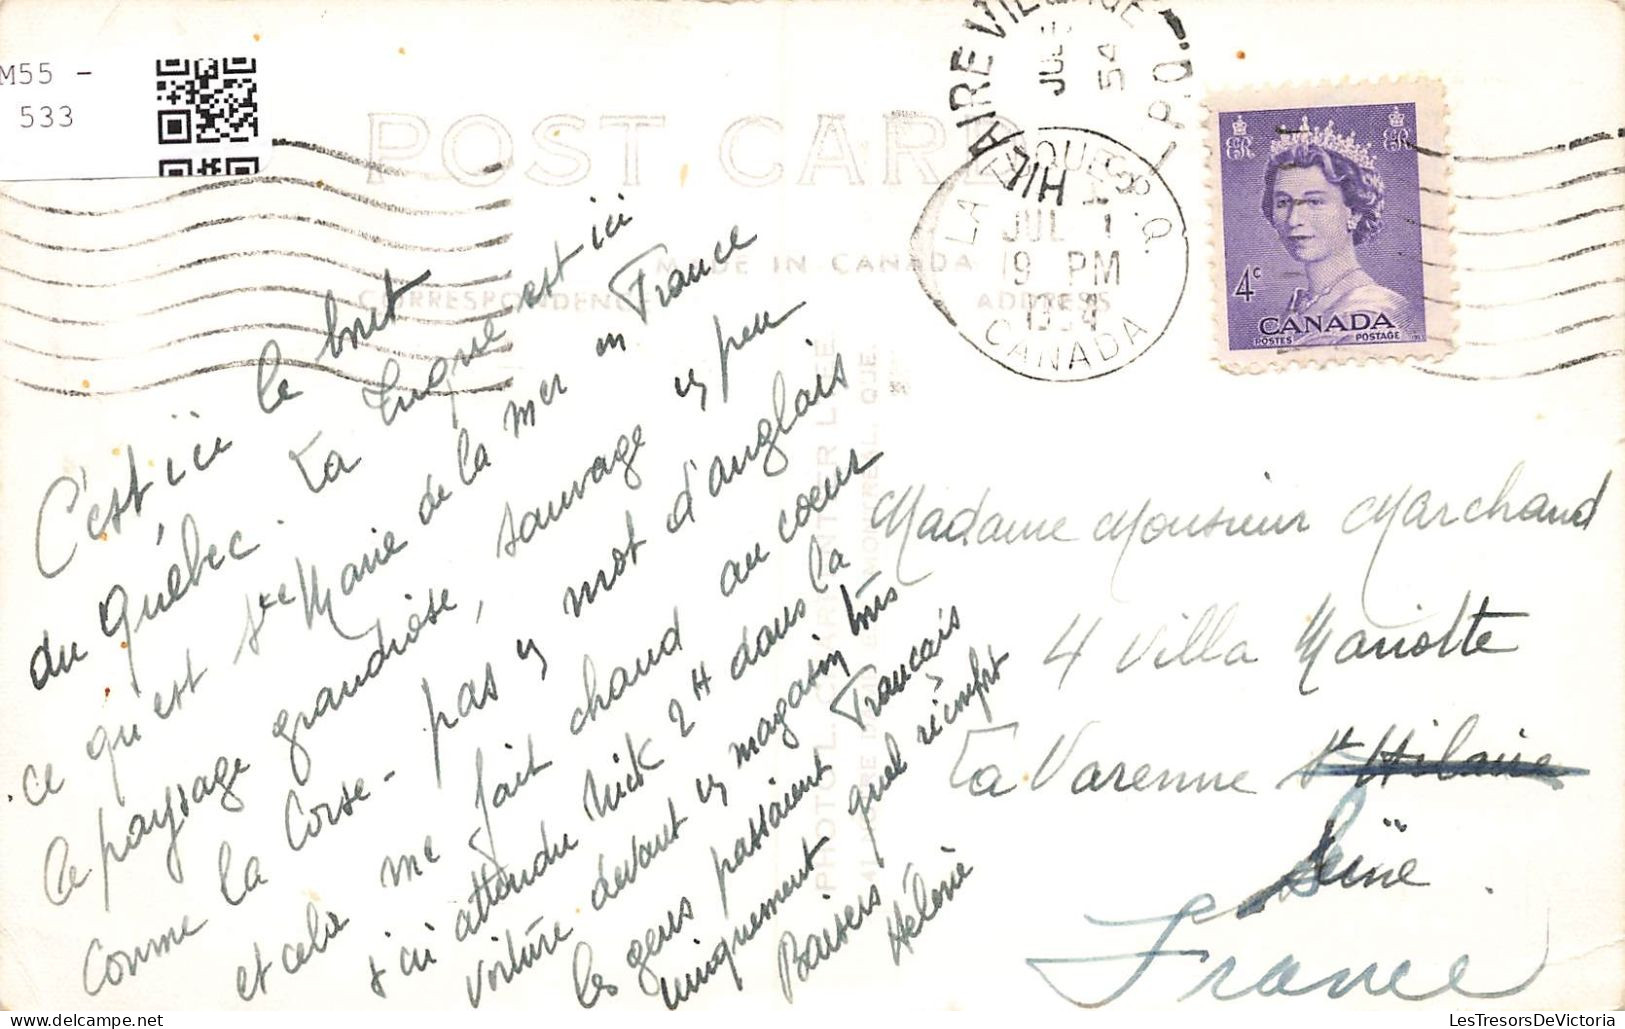 M55 -
533
POST CARD
MADE IN CANADA
CORRESPONDENCE
ADDRESS
HILAIRE VILLAGE P.Q.
JUL
54
JUL 1
19 PM
1954
CANADA
4c
CANADA
POSTES POSTAGE
C'est ici le bout
du Québec. La Tuque est ici
ce qu'est Ste Marie de la mer en France
le paysage grandiose, sauvage un peu
comme la Corse - pas un mot d'anglais
et cela me fait chaud au coeur
j'ai attendu Nick 2H dans la
voiture devant un magasin tous
les gens passaient Francais
uniquement quel réconfort
Baisers
Hélène
Madame Monsieur Marchand
4 Villa Mariotte
La Varenne St Hilaire
Seine
France
LesTresorsDeVictoria